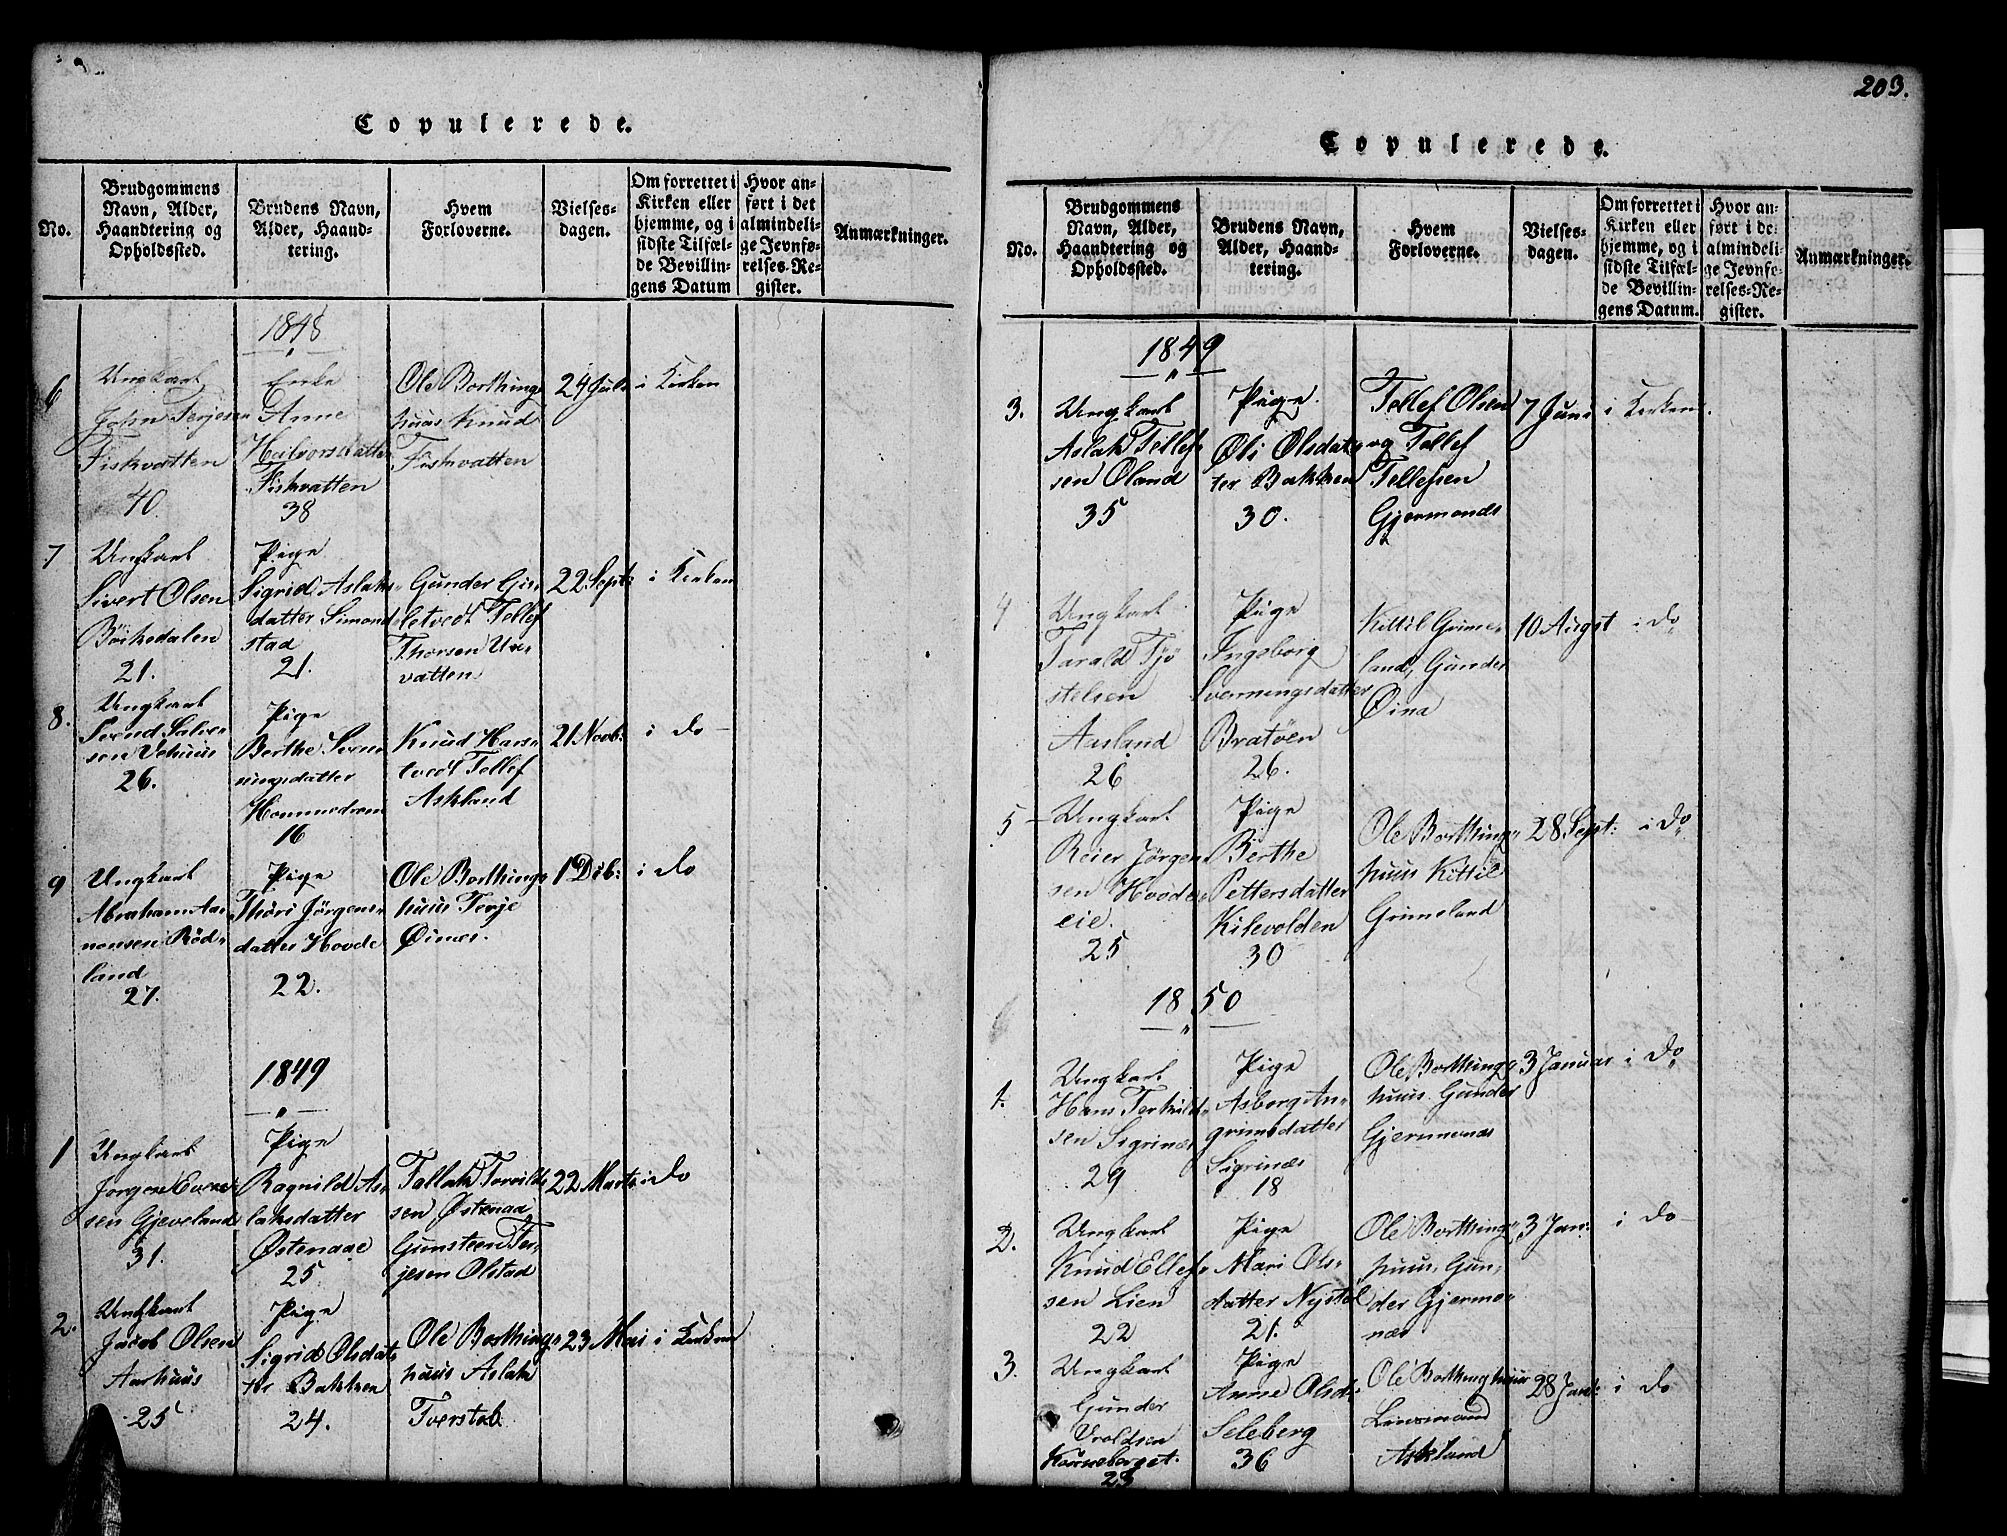 Copulerede.
No.
Brudgommens
Navn, Alder,
Haandtering og
Opholdssted.
Brudens Navn,
Alder, Haand-
tering.
Hvem
Forloverne.
Vielses-
dagen.
Om forrettet i
Kirken eller
hjemme, og i
sidste Tilfæl-
de Bevillin-
gens Datum
Hvor an-
ført i det
almindeli-
ge Jevnfø-
relses-Re-
gister.
Anmærkninger.
1848
6
Ungkarl
John Terjesen
Fiskvatten
40
Enke
Anne
Halvorsdatter
Fiskvatten
38
Ole Borthing-
huus Knud
Fiskvatten
24 Juli
i Kirken
7
Ungkarl
Sivert Olsen
Börkedalen
21.
Pige
Sigrid Aslaks-
datter Simond-
stad
21.
Gunder Gis-
letvedt Tellef
Thorsen Ur-
vatten
22 Sept:
i Kirken
8.
Ungkarl
Svend Salve-
sen Vehuus
26.
Pige
Berthe Sven-
ungsdatter
Hommedram
16
Knud Hars-
tvedt Tellef
Askland
21 Novb:
i do
9
Ungkarl
Abraham Aa-
nonsen Röd-
land
27.
Pige
Thöri Jörgens-
datter Hovde
22.
Ole Borthing-
huus Terje
Öinæs.
1 Dcb:
i do
1849
1
Ungkarl
Jörgen Evens-
sen Gjeveland
31.
Pige
Ragnild As-
laksdatter
Østenaae
25
Tallak Torvilds-
sen Østenaa
Gunsteen Ter-
jesen Olstad
22 Marts
i do
2.
Ungkarl
Jacob Olsen
Aarhuus
25
Pige
Sigrid Olsdat-
ter Bakken
24.
Ole Borthing-
huus Aslak
Tverstøl
23 Mai
i Kirken
203.
Copulerede.
No.
Brudgommens
Navn, Alder,
Haandtering og
Opholdssted.
Brudens Navn,
Alder, Haand-
tering.
Hvem
Forloverne.
Vielses-
dagen.
Om forrettet i
Kirken eller
hjemme, og i
sidste Tilfæl-
de Bevillin-
gens Datum.
Hvor an-
ført i de
almindeli-
ge Jevnfø-
relses-Re-
gister.
Anmærkninger.
1849
3.
Ungkarl
Aslak Tellef-
sen Öland
35
Pige.
Öli Olsdat-
ter Bakken
30.
Tellef Olsen
og Tellef
Tellefsen
Gjermonds
7 Juni
i Kirken.
4
Ungkarl
Tarald Tjö
stelsen
Aasland
26
Pige
Ingeborg
Svenningsdatter
Bratöen
26.
Kittil Grime-
land, Gunder
Öina
10 Augst
i do
5
Ungkarl
Reier Jörgen-
sen Hovde-
eie.
25
Pige
Berthe
Pettersdatter
Kilevolden
30
Ole Borthing-
huus Kittil
Grimeland
28 Sept:
i do
1850
1.
Ungkarl
Hans Terkild-
sen Sigrinæs
29
Pige
Asborg An-
grimsdatter
Sigrinæs
18
Ole Borthing-
huus. Gunder
Gjermenæs
3 Januar
i do
2.
Ungkarl
Knud Ellef-
sen Lien
22
Pige
Mari Ols-
datter Nystöl
21.
Ole Borthing-
huus, Gun-
der Gjerme-
næs
3 Jan:
i do
3.
Ungkarl
Gunder
Uroldsen
Kanneberget.
23
Pige
Anne Olsd:
Seleberg
36
Ole Borthinghuus
Linsmand
Askland
28 Jan:
i do